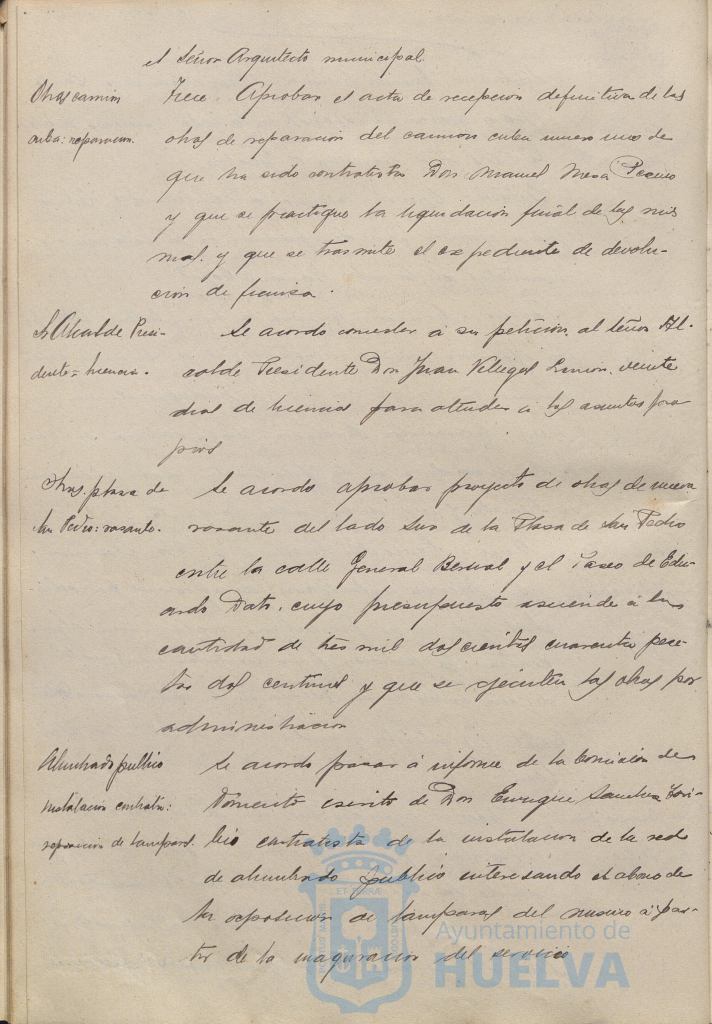 el Señor Arquitecto municipal.
Obras camion
cuba: reparacion.
Trece. Aprobar el acta de recepcion definitiva de las
obras de reparacion del camion cuba numero uno de
que ha sido contratista Don Manuel Mesa
y que se practique la liquidacion final de las mis
mas. y que se tramite el expediente de devolu-
cion de fianza.
Sr Alcalde Presi-
dente = licencia.
Se acordo conceder a su peticion. al señor Al-
calde Presidente Don Juan, veinte
dias de licencia para atender a los asuntos pro
pios
Obras. plaza de
San Pedro: rasante.
Se acordo aprobar proyecto de obras de nueva
rasante del lado Sur de la Plaza de San Pedro
entre la calle General Bernal y el Paseo de Edu-
ardo Dato. cuyo presupuesto asciende a la
cantidad de tres mil doscientas cuarenta pese-
tas dos centimos y que se ejecuten las obras por
administracion
Alumbrado publico
instalacion contrata:
reposicion de lamparas.
Se acordo pasar a informe de la Comision de
Fomento escrito de Don Enrique Sanchez Tori-
bio contratista de la instalacion de la red
de alumbrado publico interesando el abono de
la reposicion de lamparas del mismo a par-
tir de la inauguracion del servicio
Ayuntamiento de
HUELVA